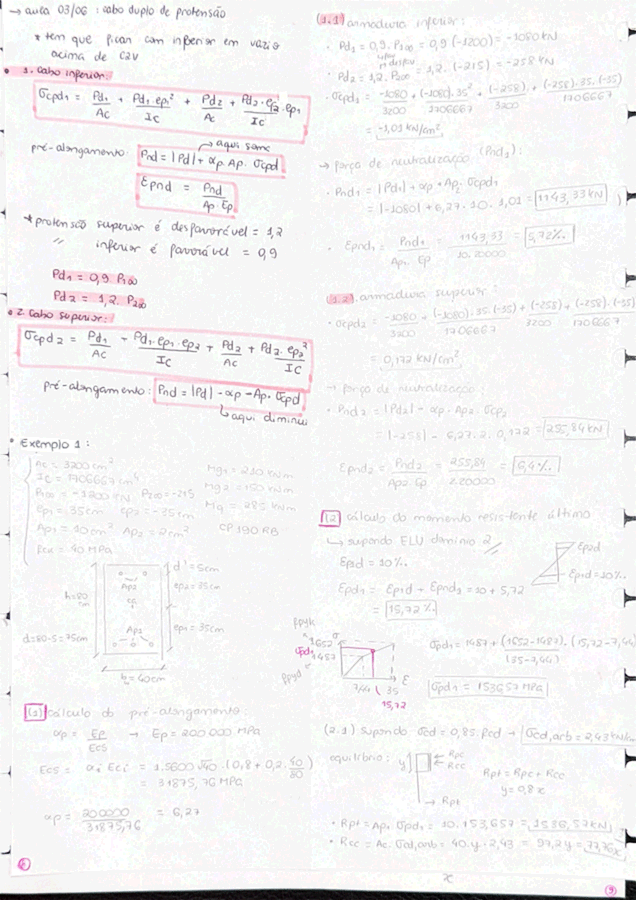 → aula 03/06: cabo duplo de protensão
* tem que ficar com inferior em vazio
acima de C2V
• 1. Cabo inferior:
σcpd1 = Pd1/Ac + Pd1·ep1²/Ic + Pd2/Ac + Pd2·ep2·ep1/Ic
→ aqui soma
pré-alongamento: Pnd = |Pd| + αp. Ap. σcpd
Epnd = Pnd/Ap·Ep
* protensão superior é desfavorável = 1,2
// inferior é favorável = 0,9
Pd1 = 0,9 P1∞
Pd2 = 1,2. P2∞
• 2. Cabo superior:
σcpd2 = Pd1/Ac + Pd1·ep1·ep2/Ic + Pd2/Ac + Pd2·ep2²/Ic
pré-alongamento: Pnd = |Pd| - αp - Ap. σcpd
↳ aqui diminui
• Exemplo 1:
Ac = 3200 cm² Mg1 = 210 kNm
Ic = 1706667 cm⁴ Mg2 = 150 kNm
P1∞ = -1200 kN P2∞ = -215 Mq = 285 kNm
ep1 = 35cm ep2 = -35cm
Ap1 = 10cm² Ap2 = 2cm² CP 190 RB
Fck = 40 MPa
d' = 5cm
Ap2
ep2 = 35cm
h=80 cm
cg
ep1 = 35cm
Ap1
d=80-5=75cm
b = 40cm
(1) cálculo do pré-alongamento:
αp = Ep/Ecs → Ep = 200 000 MPa
Ecs = αi Eci = 1.5600 √40 · (0,8 + 0,2 · 40/80)
= 31875,76 MPa
αp = 200000/31875,76 = 6,27
(1.1) armadura inferior:
• Pd1 = 0,9. P1∞ = 0,9 (-1200) = -1080 kN
• Pd2 = 1,2. P2∞ = 1,2. (-215) = -258 kN
• σcpd1 = -1080/3200 + (-1080).35²/1706667 + (-258)/3200 + (-258).35.(-35)/1706667
= -1,01 kN/cm²
→ força de neutralização (Pnd1):
• Pnd1 = |Pd1| + αp · Ap1 σcpd1
= |-1080| + 6,27. 10. 1,01 = 1143,33 kN
• Epnd1 = Pnd1/Ap1. Ep = 1143,33/10.20000 = 5,72‰
(1.2) armadura superior:
σcpd2 = -1080/3200 + (-1080).35.(-35)/1706667 + (-258)/3200 + (-258).(-35)²/1706667
= 0,172 kN/cm²
→ força de neutralização:
• Pnd2 = |Pd2| - αp. Ap2 σcp2
= |-258| - 6,27. 2. 0,172 = 255,84 kN
Epnd2 = Pnd2/Ap2 Ep = 255,84/2.20000 = 6,4‰
(2) cálculo do momento resistente último
↳ supondo ELU domínio 2
Ep1d = 10‰
Epd1 = Ep1d + Epnd1 = 10 + 5,72
= 15,72‰
Ep2d
Ep1d=10‰
fpyk
1652
σpd1
1487
fpyd
σ
ε
7,44 35
15,72
σpd1 = 1487 + (1652-1487). (15,72-7,44)/(35-7,44)
σpd1 = 1536,57 MPa
(2.1) supondo σcd = 0,85. fcd → σcd,arb = 2,43 kN/cm²
equilíbrio: y Rpc Rcc
→ Rpt
Rpt = Rpc + Rcc
y = 0,8 x
• Rpt = Ap1 σpd1 = 10. 153,657 = 1536,57 kN
• Rcc = Ac. σcd,arb = 40.y. 2,43 = 97,2 y = 77,76x
x
9